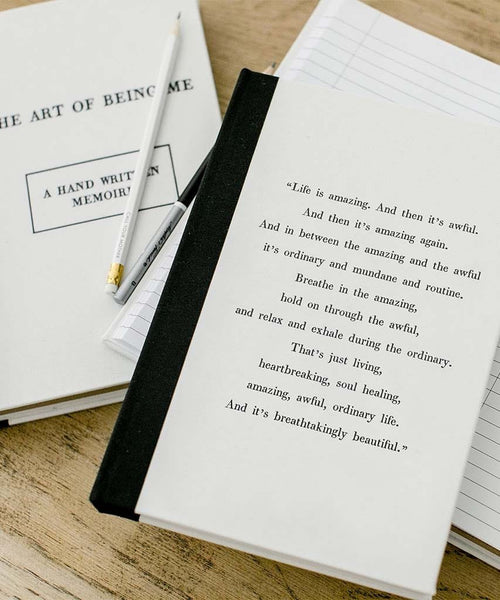 THE ART OF BEING ME
A HAND WRITTEN
MEMOIR
“Life is amazing. And then it’s awful.
And then it’s amazing again.
And in between the amazing and the awful
it’s ordinary and mundane and routine.
Breathe in the amazing,
hold on through the awful,
and relax and exhale during the ordinary.
That’s just living,
heartbreaking, soul healing,
amazing, awful, ordinary life.
And it’s breathtakingly beautiful.”